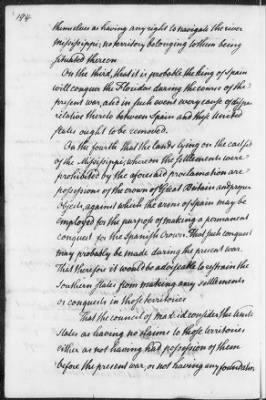 194
themselves as having any right to navigate the river
Mississippi, no territory belonging to them being
situated thereon
On the third, that it is probable the King of Spain
will conquer the Floridas during the course of the
present war, and in such event every cause of dispu
relative thereto between Spain and these United
States ought to be removed.
On the fourth that the lands lying on the east side
of the Mississippi, whereon the settlements were
prohibited by the aforesaid proclamation are
possessions of the crown of Great Britain and proper
objects, against which the arms of Spain may be
employed for the purpose of making a permanent
conquest for the Spanish Crown. That such conquest
may probably be made during the present war.
That therefore it would be adviseable to restrain the
Southern States from making any settlements
or conquests in those territories
That the council of mad.id consider the United
States as having no claims to those territories
either as not having had possession of them
before the present war, or not having any foundation